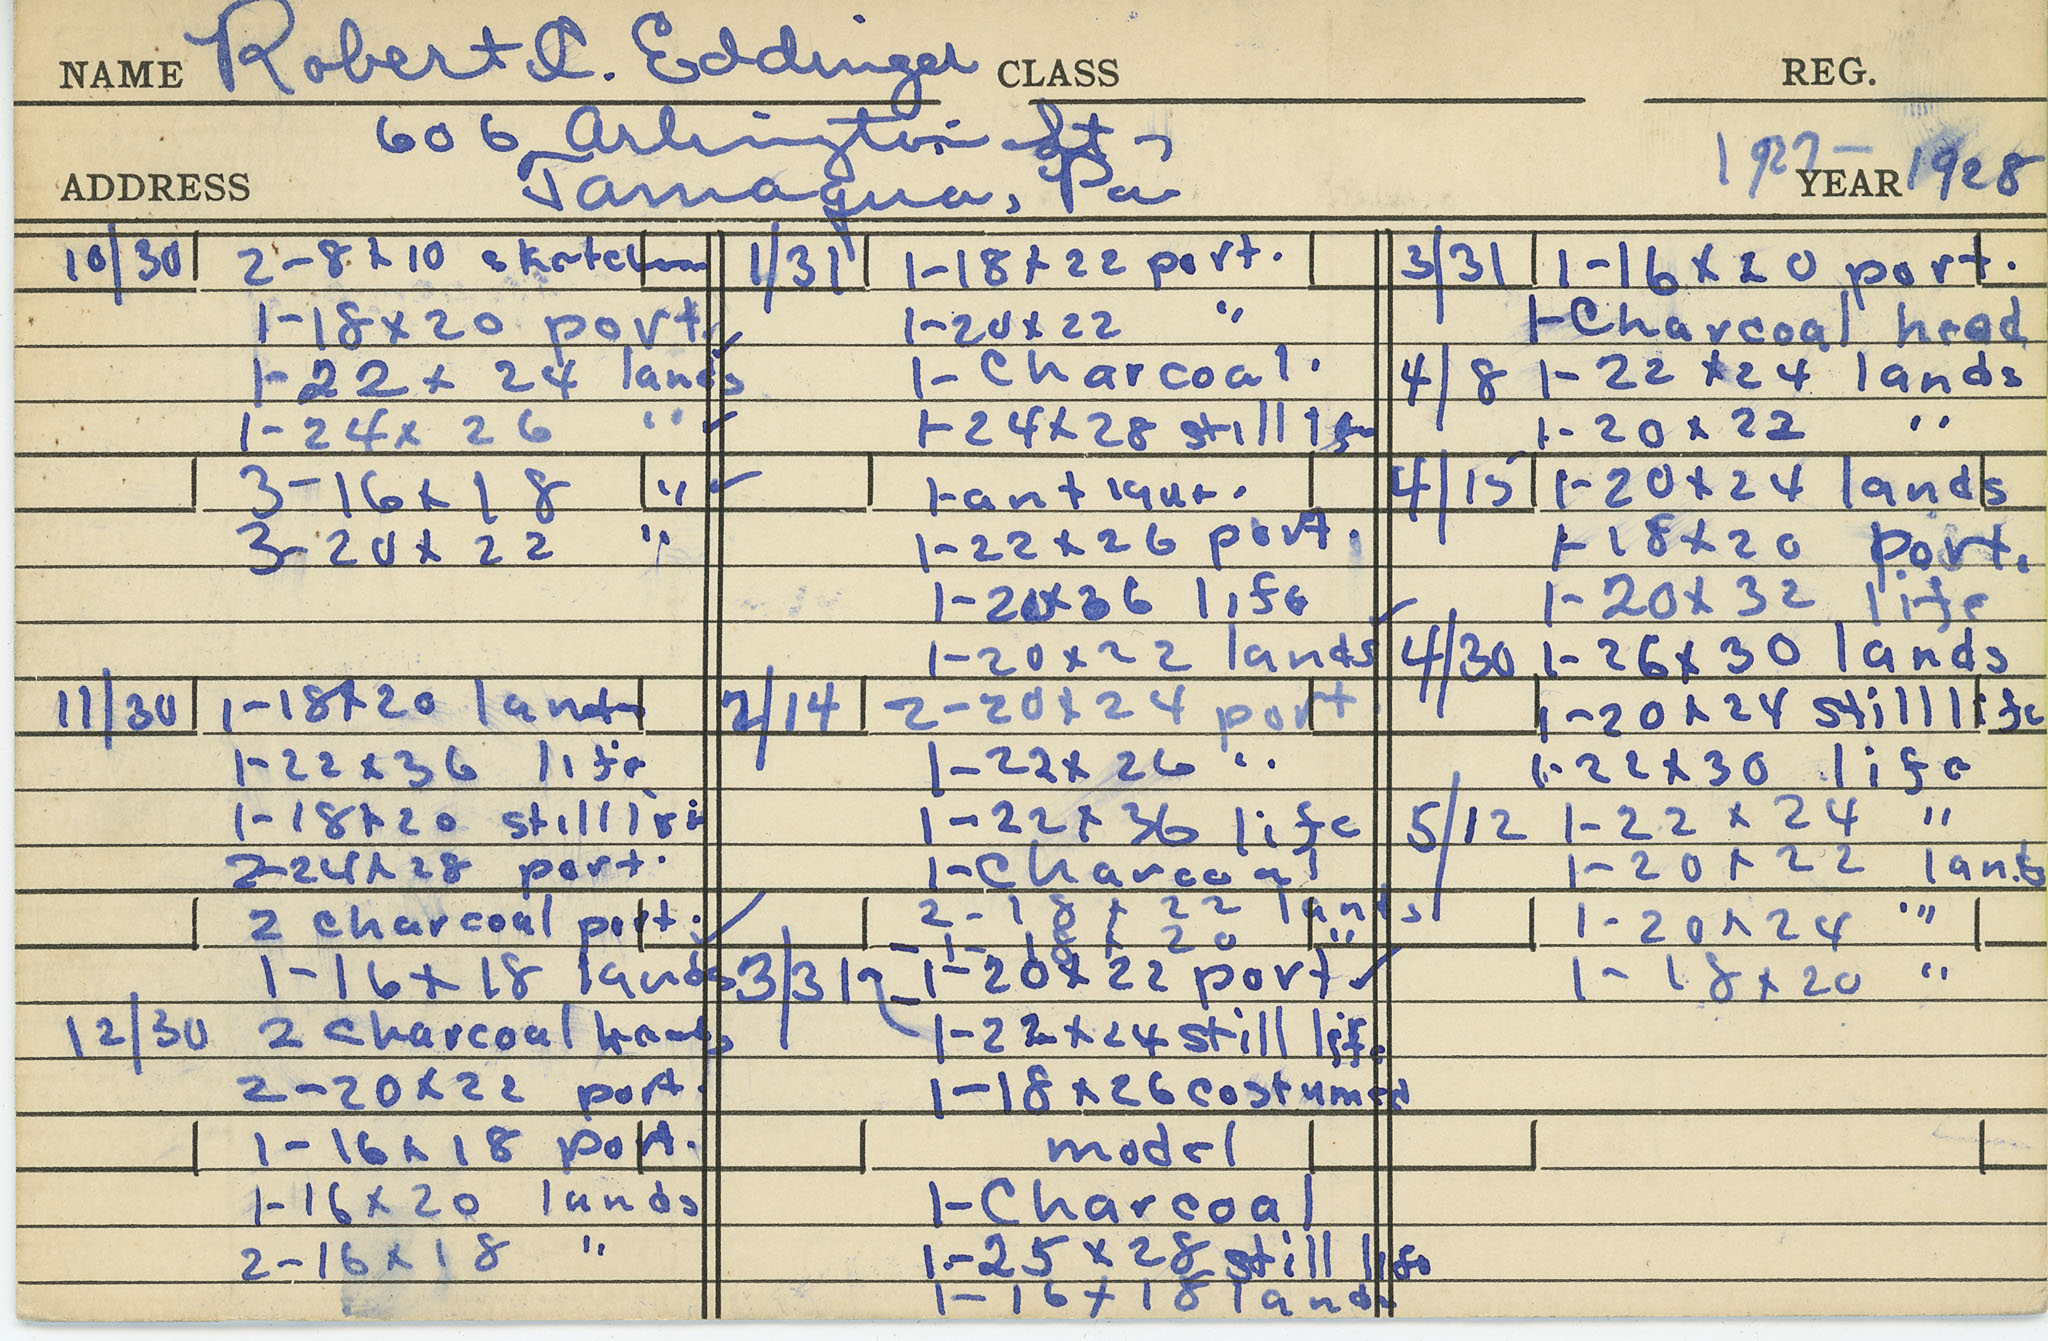 NAME Robert C. Eddinger CLASS REG.
606 Arlington St,
ADDRESS Tamaqua, Pa 1927- YEAR 1928
10/30 2-8x10 sketches
1-18x20 port.
1-22x24 lands
1-24x26 "
3-16x18 "
3-20x22 "
11/30 1-18x20 lands
1-22x36 life
1-18x20 still life
2-24x28 port.
2 charcoal port.
1-16x18 lands
12/30 2 charcoal heads
2-20x22 port.
1-16x18 port.
1-16x20 lands
2-16x18 "
1/31 1-18x22 port.
1-20x22 "
1-Charcoal.
1-24x28 still life
1-antique.
1-22x26 port.
1-20x36 life
1-20x22 lands
2/14 2-20x24 port.
1-22x26 "
1-22x36 life
1-Charcoal
2-18x22 lands
1-18x20 "
3/31 1-20x22 port
1-22x24 still life
1-18x26 costumed
model
1-Charcoal
1-25x28 still life
1-16x18 lands
3/31 1-16x20 port.
1-Charcoal head
4/8 1-22x24 lands
1-20x22 "
4/15 1-20x24 lands
1-18x20 port.
1-20x32 life
4/30 1-26x30 lands
1-20x24 still life
1-22x30 life
5/12 1-22x24 "
1-20x22 lands
1-20x24 "
1-18x20 "